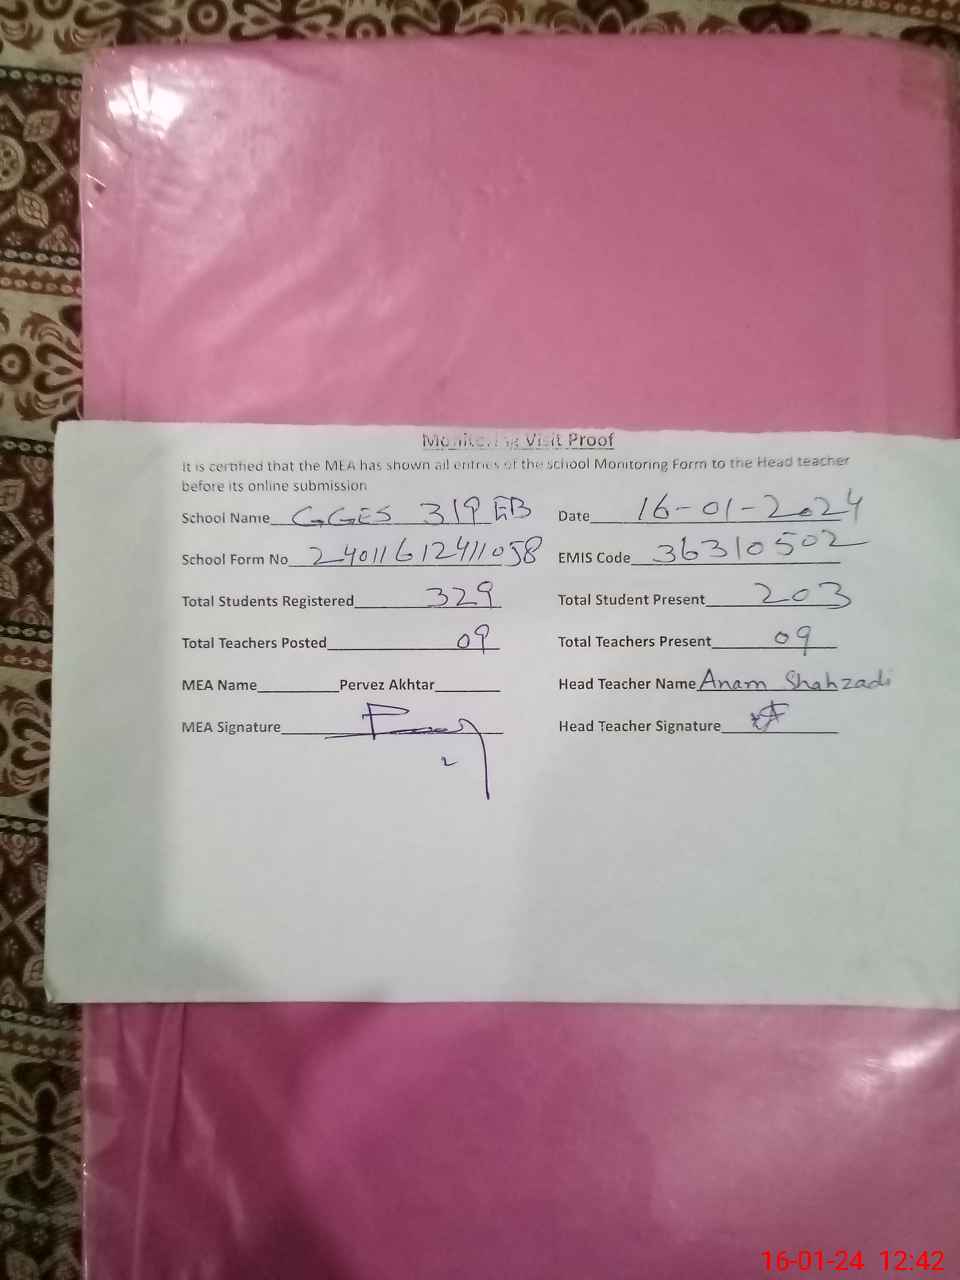 Monitoring Visit Proof
It is certified that the MEA has shown all entries of the school Monitoring Form to the Head teacher
before its online submission
School Name GGES 319 EB Date 16-01-2024
School Form No 24011612411058 EMIS Code 36310502
Total Students Registered 329 Total Student Present 203
Total Teachers Posted 09 Total Teachers Present 09
MEA Name Pervez Akhtar Head Teacher Name Anam Shahzadi
MEA Signature Head Teacher Signature
16-01-24 12:42